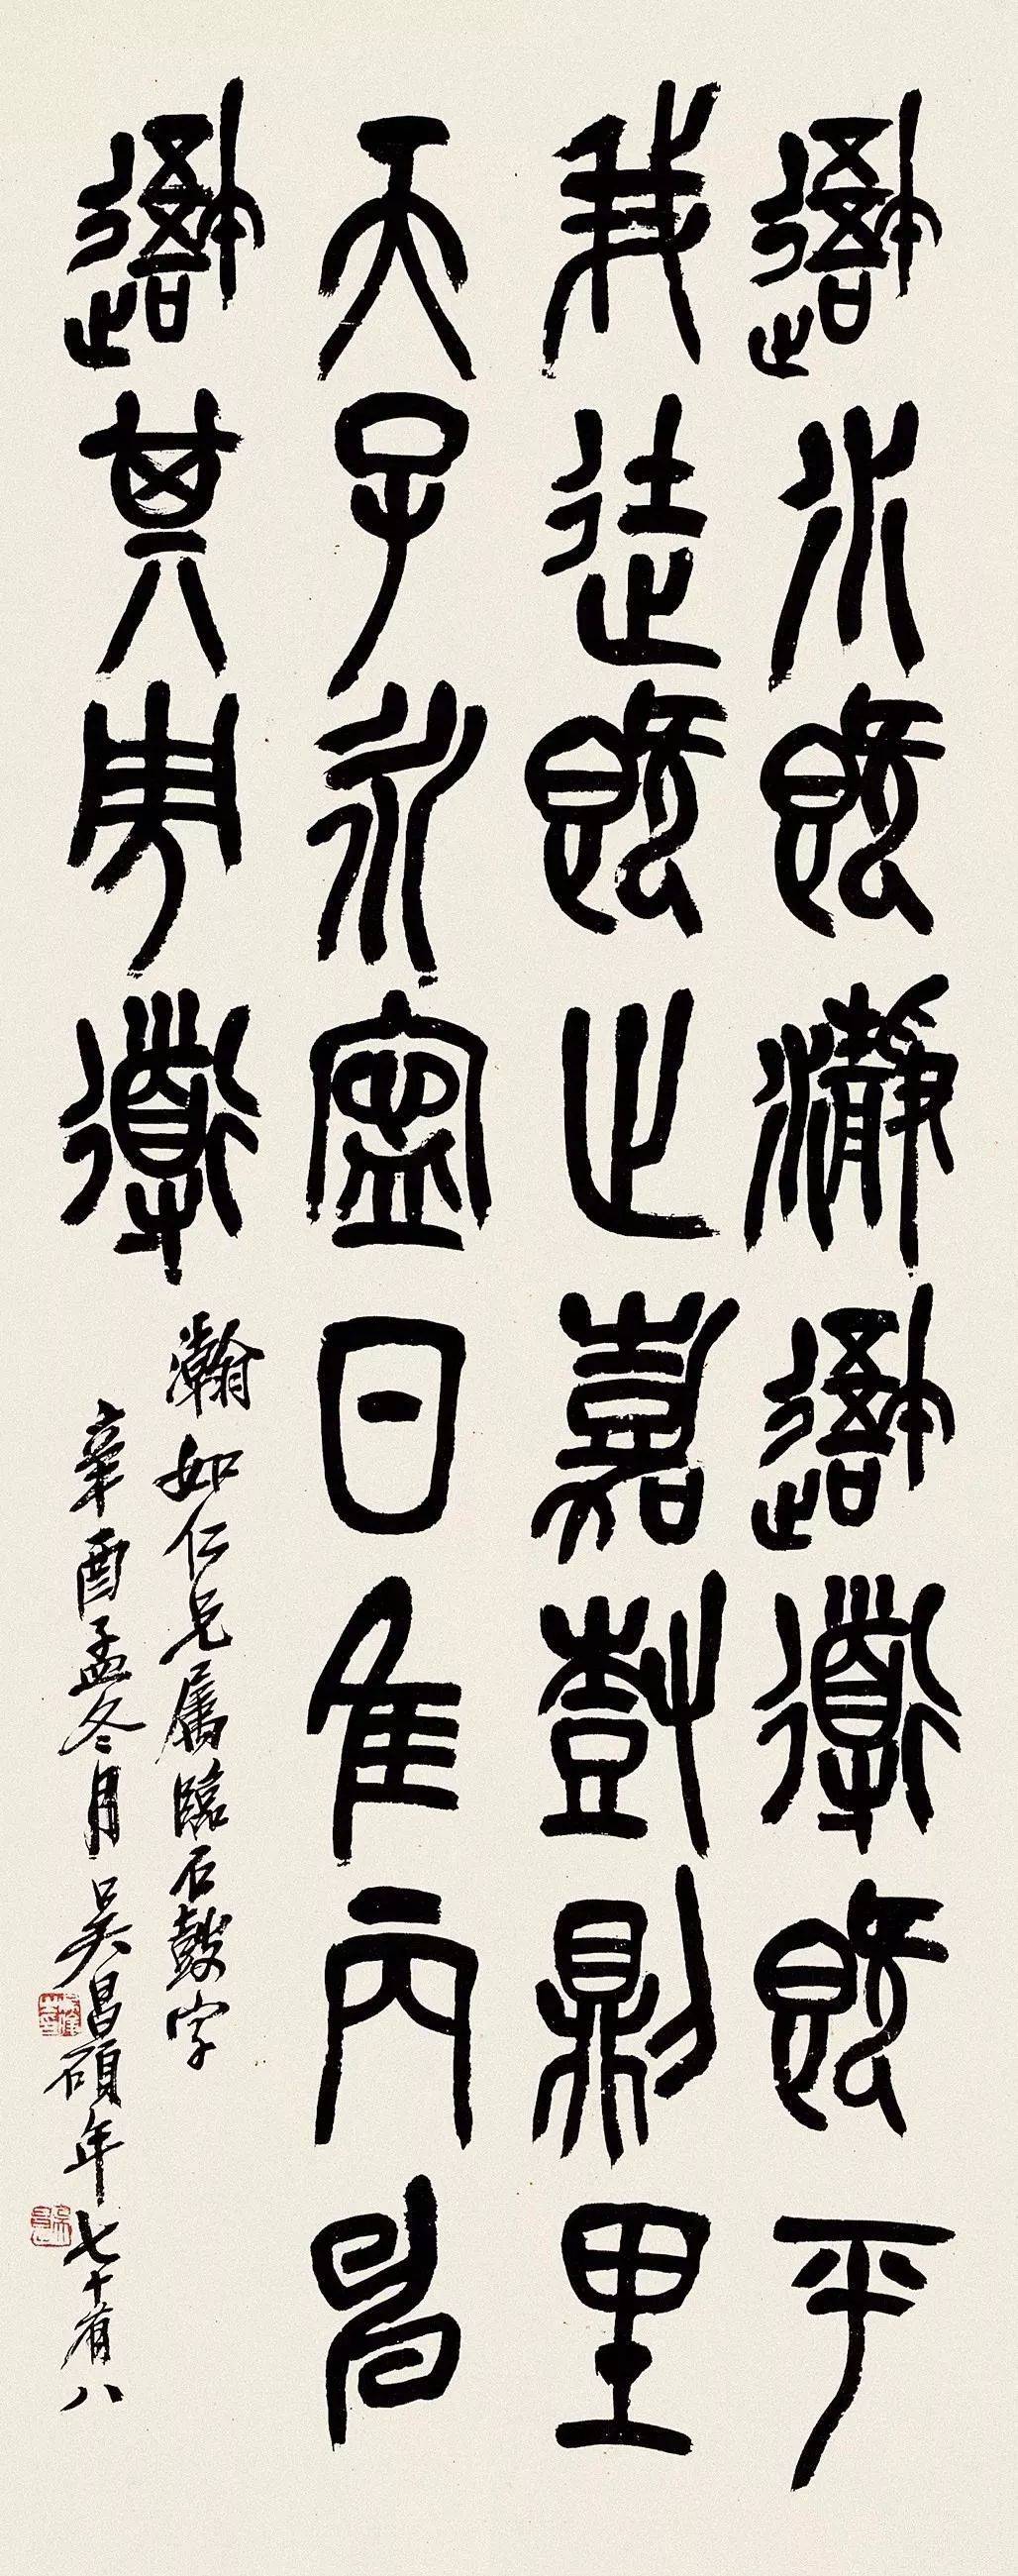 䢔水既瀞䢔導既平
我徒既止嘉樹則里
天子永寍日隹丙申
䢔其周導
瀚如仁兄属臨石鼓字
辛酉孟冬月吳昌碩年七十有八